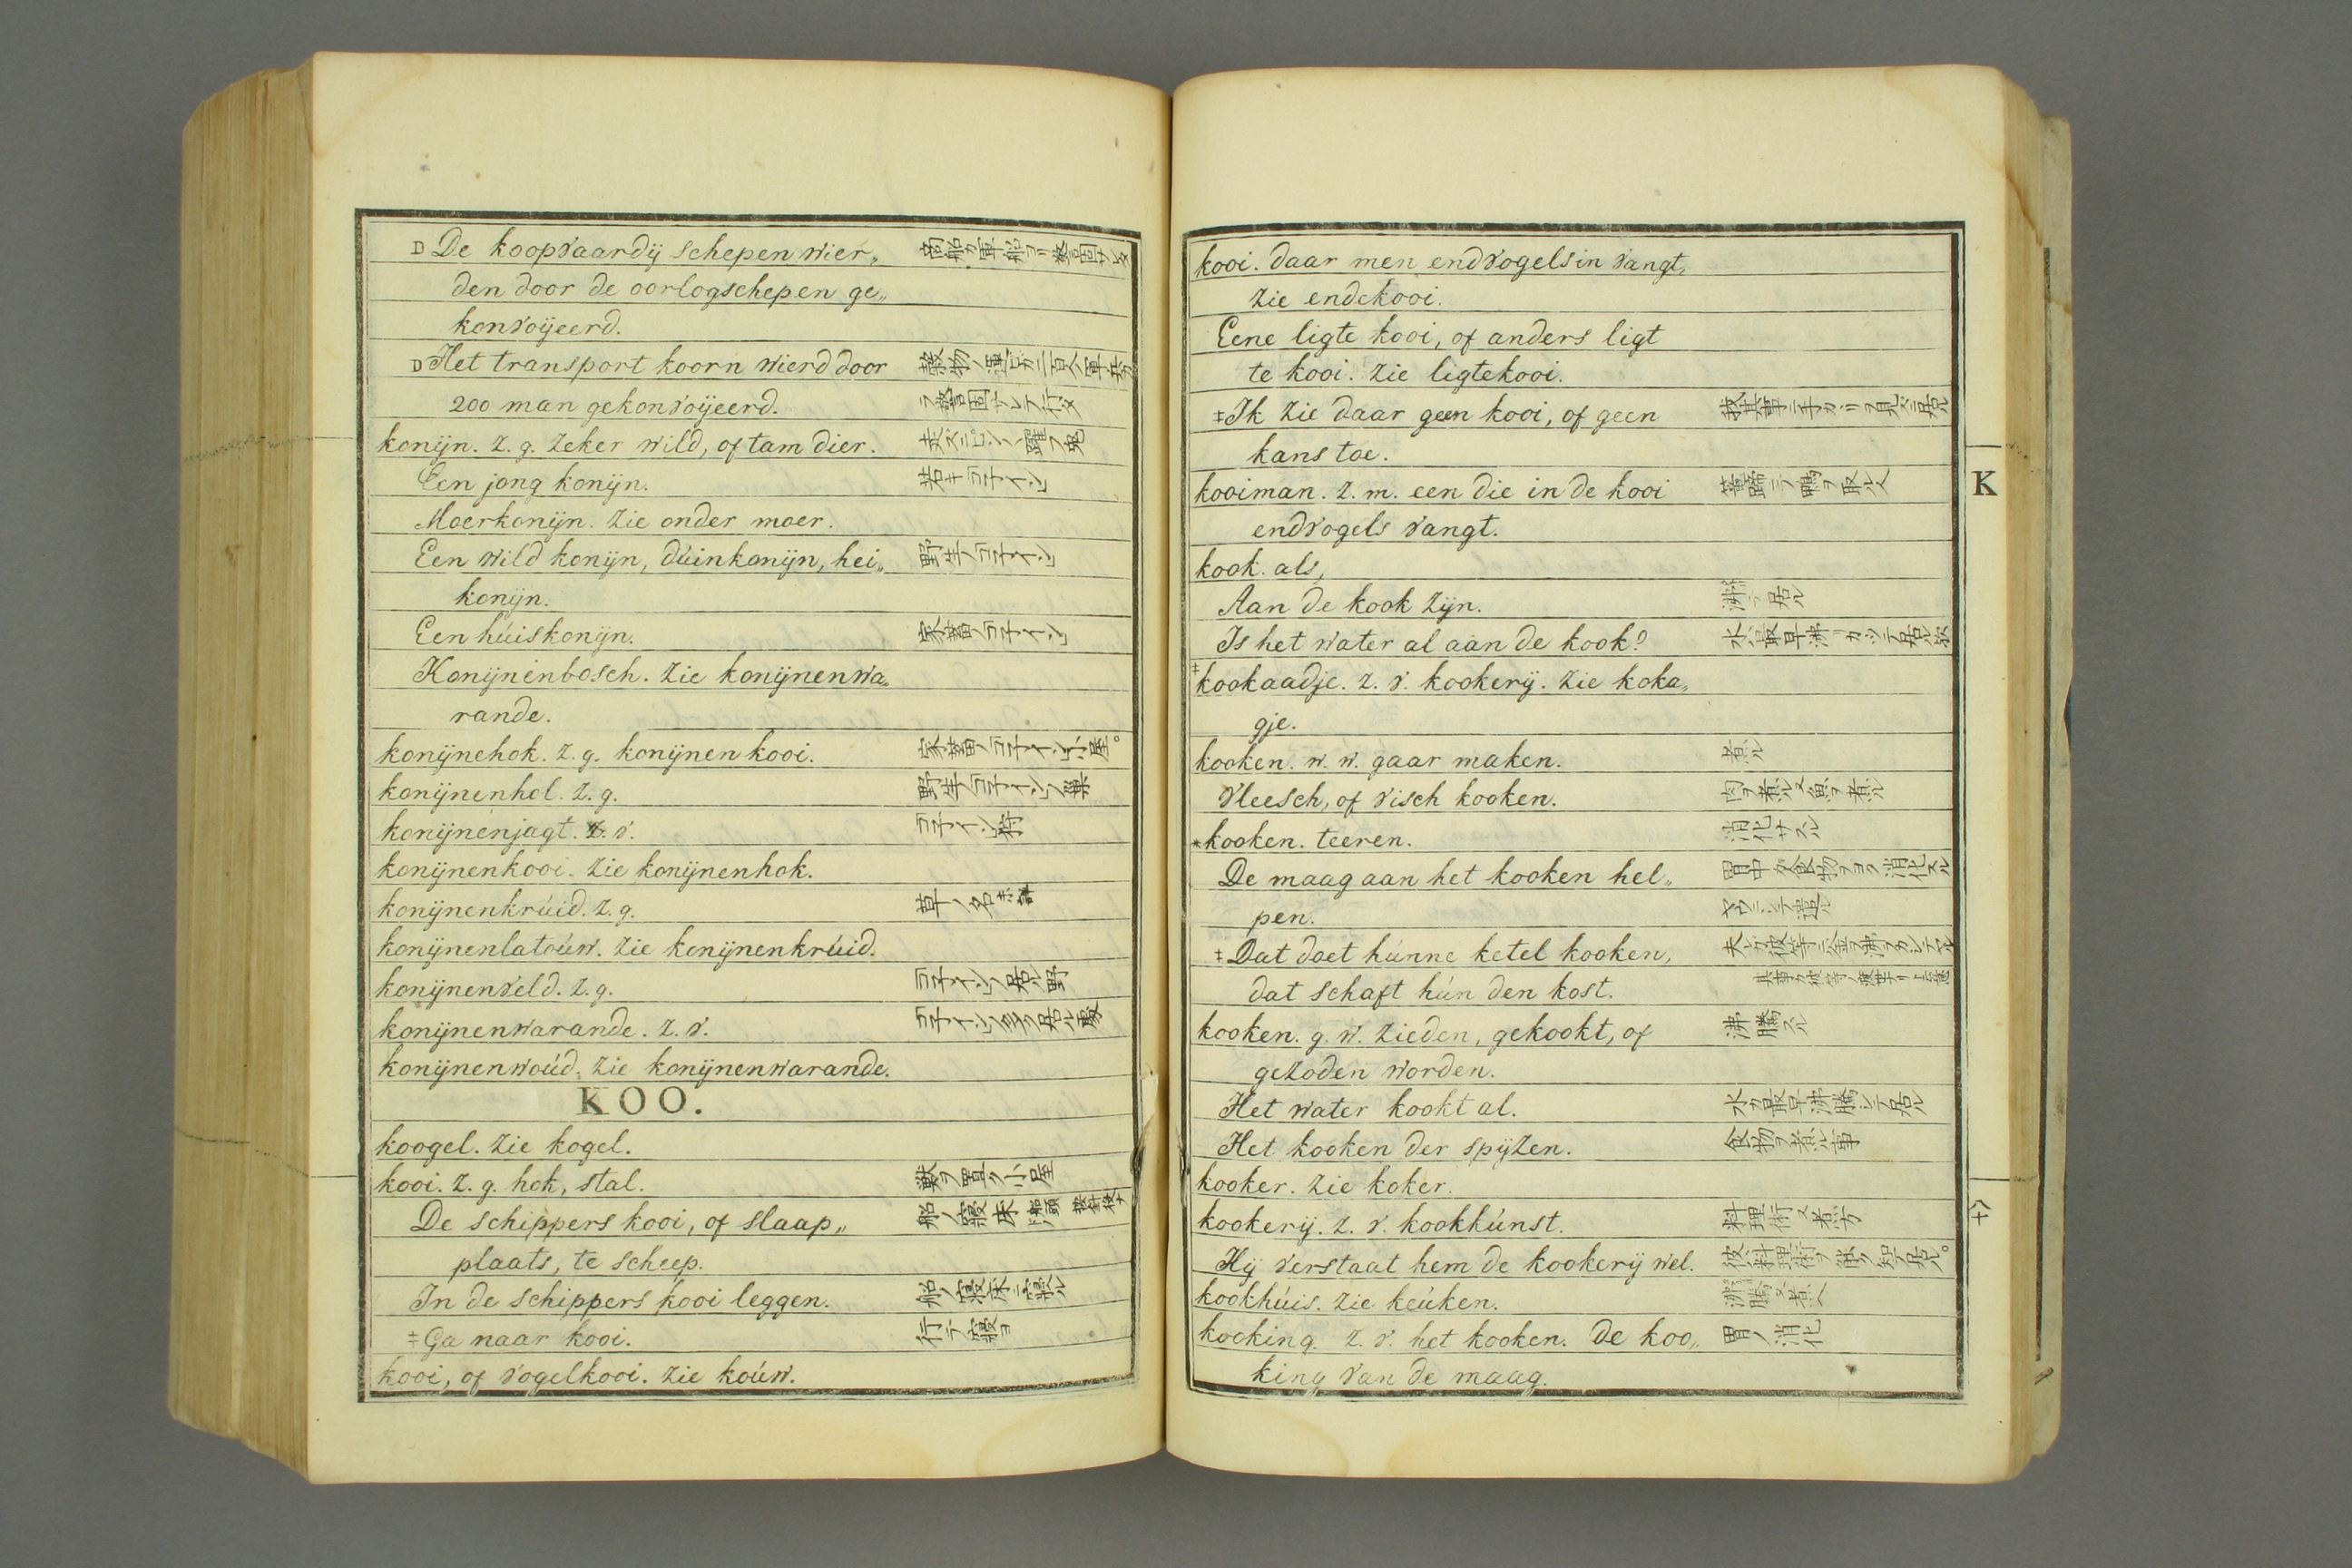 D De koopvaardij schepen wier„ 商船ガ軍船ヨリ警固サレタ
den door de oorlogschepen ge„
konvoijeerd.
D Het transport koorn wierd door
200 man gekonvoijeerd. 警固サレテ行タ
konijn. z. g. zeker wild, of tam dier.
Een jong konijn. 若キコネイン
Moerkonijn. zie onder moer.
Een wild konijn, dúinkonijn, hei„ 野生ノコネイン
konijn.
Een húiskonijn. 家畜ノコネイン
Konijnenbosch. zie konijnenwa„
rande.
konijnehok. z. g. konijnen kooi. 家畜ノコネインノ小屋。
konijnenhol. z. g. 野生ノコネインノ巣
konijnenjagt. z. v. コネイン狩
konijnenkooi. zie konijnenhok.
konijnenkrúid. z. g. 草ノ名
konijnenlatoúw. zie konijnenkrúid.
konijnenveld. z. g. コネインノ居ル野
konijnenwarande. z. v. コネインノ多ク居ル藪
konijnenwoúd. zie konijnenwarande.
KOO.
koogel. zie kogel.
kooi. z. g. hok, stal. 獣ヲ置ク小屋
De schippers kooi, of slaap„ 船ノ寝床
plaats, te scheep.
In de schippers kooi leggen. 船ノ寝床ニ寝ル
‡ Ga naar kooi. 行テ寝ヨ
kooi, of vogelkooi. zie koúw.
kooi. daar men endvogels in vangt,
zie endekooi.
Eene ligte kooi, of anders ligt
te kooi. zie ligtekooi.
‡ Ik zie daar geen kooi, of geen
kans toe.
kooiman. z. m. een die in de kooi
endvogels vangt.
kook. als,
Aan de kook zijn. 沸テ居ル
Is het water al aan de kook?
‡ kookaadje. z. v. kookerij. zie koka„
gje.
kooken. w. w. gaar maken. 煮ル
Vleesch, of visch kooken. 肉ヲ煮ル又魚ヲ煮ル
* kooken. teeren. 消化サスル
De maag aan het kooken hel„
pen.
‡ Dat doet húnne ketel kooken,
dat schaft hún den kost.
kooken. g. w. zieden, gekookt, of 沸騰スル
gezoden worden.
Het water kookt al. 水ガ最早沸騰シテ居ル
Het kooken der spijzen. 食物ヲ煮ル事
kooker. zie koker.
kookerij. z. v. kookkúnst. 料理術又煮方
Hij verstaat hem de kookerij wel.
kookhúis. zie keúken.
kooking. z. v. het kooken. De koo„ 胃ノ消化
king van de maag.
K